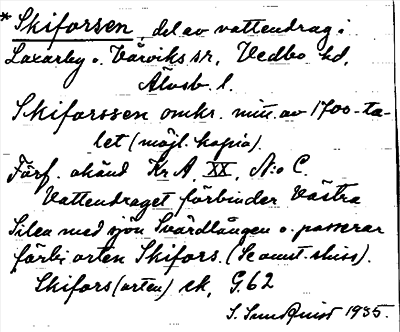 * Skiforsen, del av vattendrag i
Laxarby o. Vårviks sr, Vedbo hd,
Älvsb. l.
Skiforssen omkr. mitt. av 1700-ta-
let (möjl. kopia).
Förf. okänd Kr. A. XX, N:o C.
Vattendraget förbinder Västra
Silen med sjön Svärdlången o. passerar
förbi orten Skifors. (Se annt. skiss).
Skifors (orten) ek. G. 62
S. 1935.